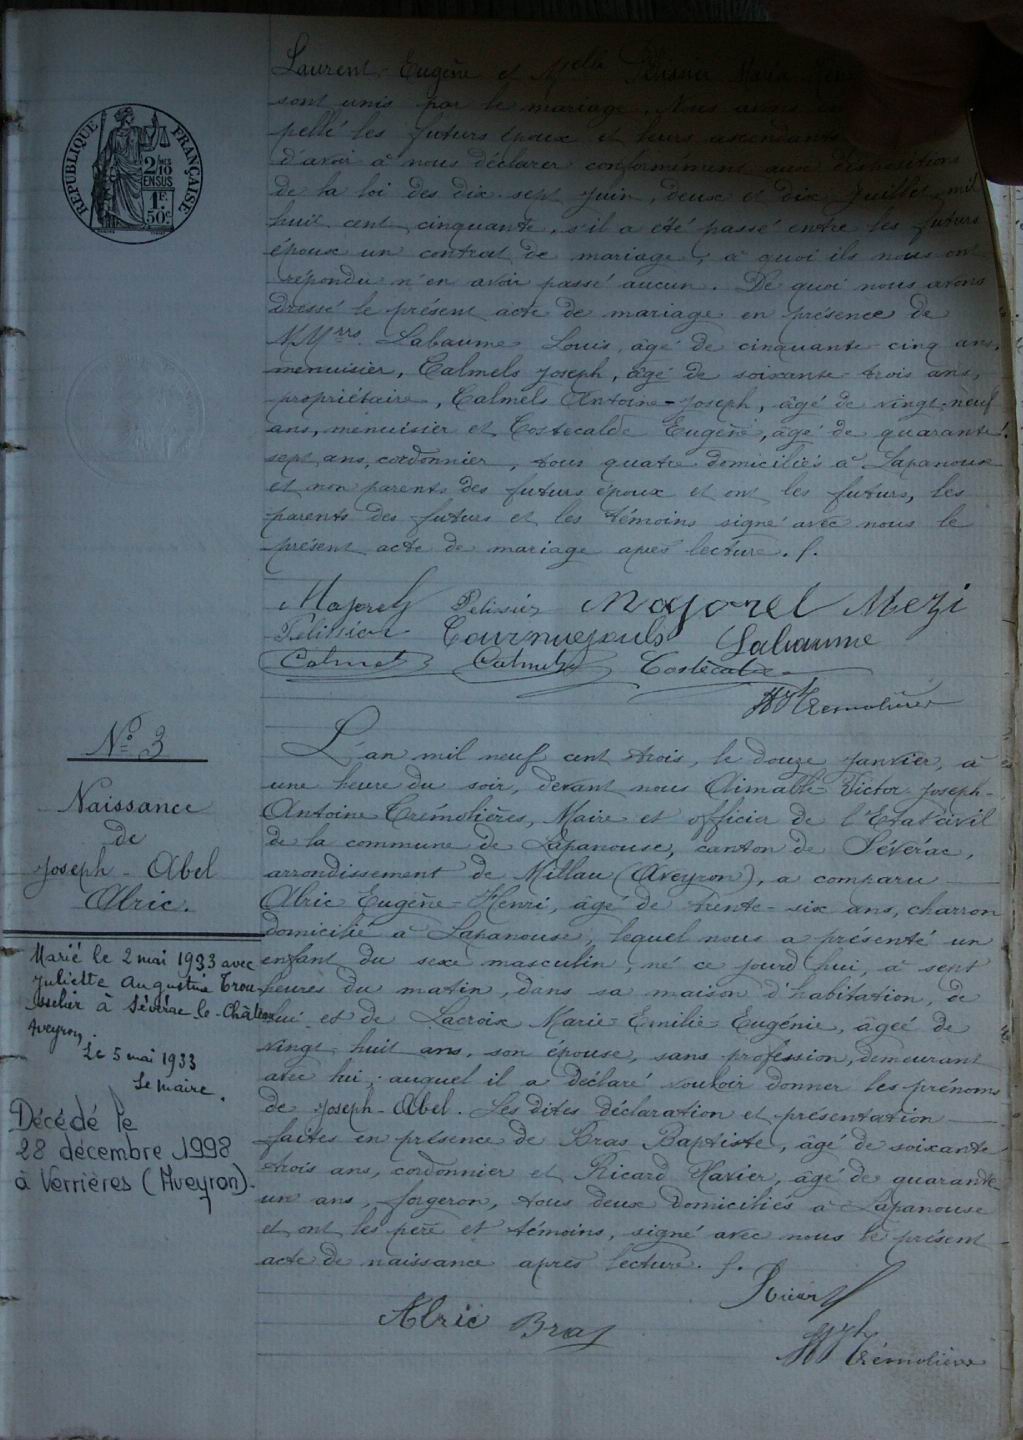 RÉPUBLIQUE FRANÇAISE
2/10 MES
EN SUS
1F.
50c
Laurent-Eugène et Melle Pélissier Maria
sont unis par le mariage. Nous avons
pellé les futurs époux et leurs ascendants
d'avoir à nous déclarer conformément aux dispositions
de la loi des dix-sept juin, deux et dix juillet mil
huit cent cinquante, s'il a été passé entre les futurs
époux un contrat de mariage, à quoi ils nous ont
répondu n'en avoir passé aucun. De quoi nous avons
dressé le présent acte de mariage en présence de
M.Mrs Labaume Louis, âgé de cinquante-cinq ans,
menuisier, Calmels Joseph, âgé de soixante-trois ans,
propriétaire, Calmels Antoine-Joseph, âgé de vingt-neuf
ans, menuisier et Costecalde Eugène, âgé de quarante
sept ans, cordonnier, tous quatre domiciliés à Lapanouse
et non parents des futurs époux et ont les futurs, les
parents des futurs et les témoins signé avec nous le
présent acte de mariage après lecture. f.
Majorel Pelisier Mayorel Mezi
Pélissier Tournuejouls Labaume
Calmels Calmels Costecalde
Trémolières
No 3
Naissance
de
Joseph-Abel
Alric.
L'an mil neuf cent trois, le douze janvier, à
une heure du soir, devant nous Aimable Victor Joseph-
Antoine Trémolières, Maire et officier de l'Etat civil
de la commune de Lapanouse, canton de Sévérac,
arrondissement de Millau (Aveyron), a comparu
Alric Eugène-Henri, âgé de trente-six ans, charron
domicilié à Lapanouse, lequel nous a présenté un
enfant du sexe masculin, né ce jourd'hui, à sept
heures du matin, dans sa maison d'habitation, de
lui et de Lacroix Marie-Emilie Eugénie, âgée de
vingt-huit ans, son épouse, sans profession, demeurant
avec lui; auquel il a déclaré vouloir donner les prénoms
de Joseph-Abel. Les dites déclaration et présentation
faites en présence de Bras Baptiste, âgé de soixante
trois ans, cordonnier et Ricard Xavier, âgé de quarante
un ans, forgeron, tous deux domiciliés à Lapanouse
et ont les père et témoins, signé avec nous le présent
acte de naissance après lecture. f.
Ricard
Alric Bras
Trémolières
Marié le 2 mai 1933 avec
Juliette Augustine Trou-
sselier à Sévérac-le-Château
Aveyron.
Le 5 mai 1933
Le maire.
Décédé le
28 décembre 1998
à Verrières (Aveyron).